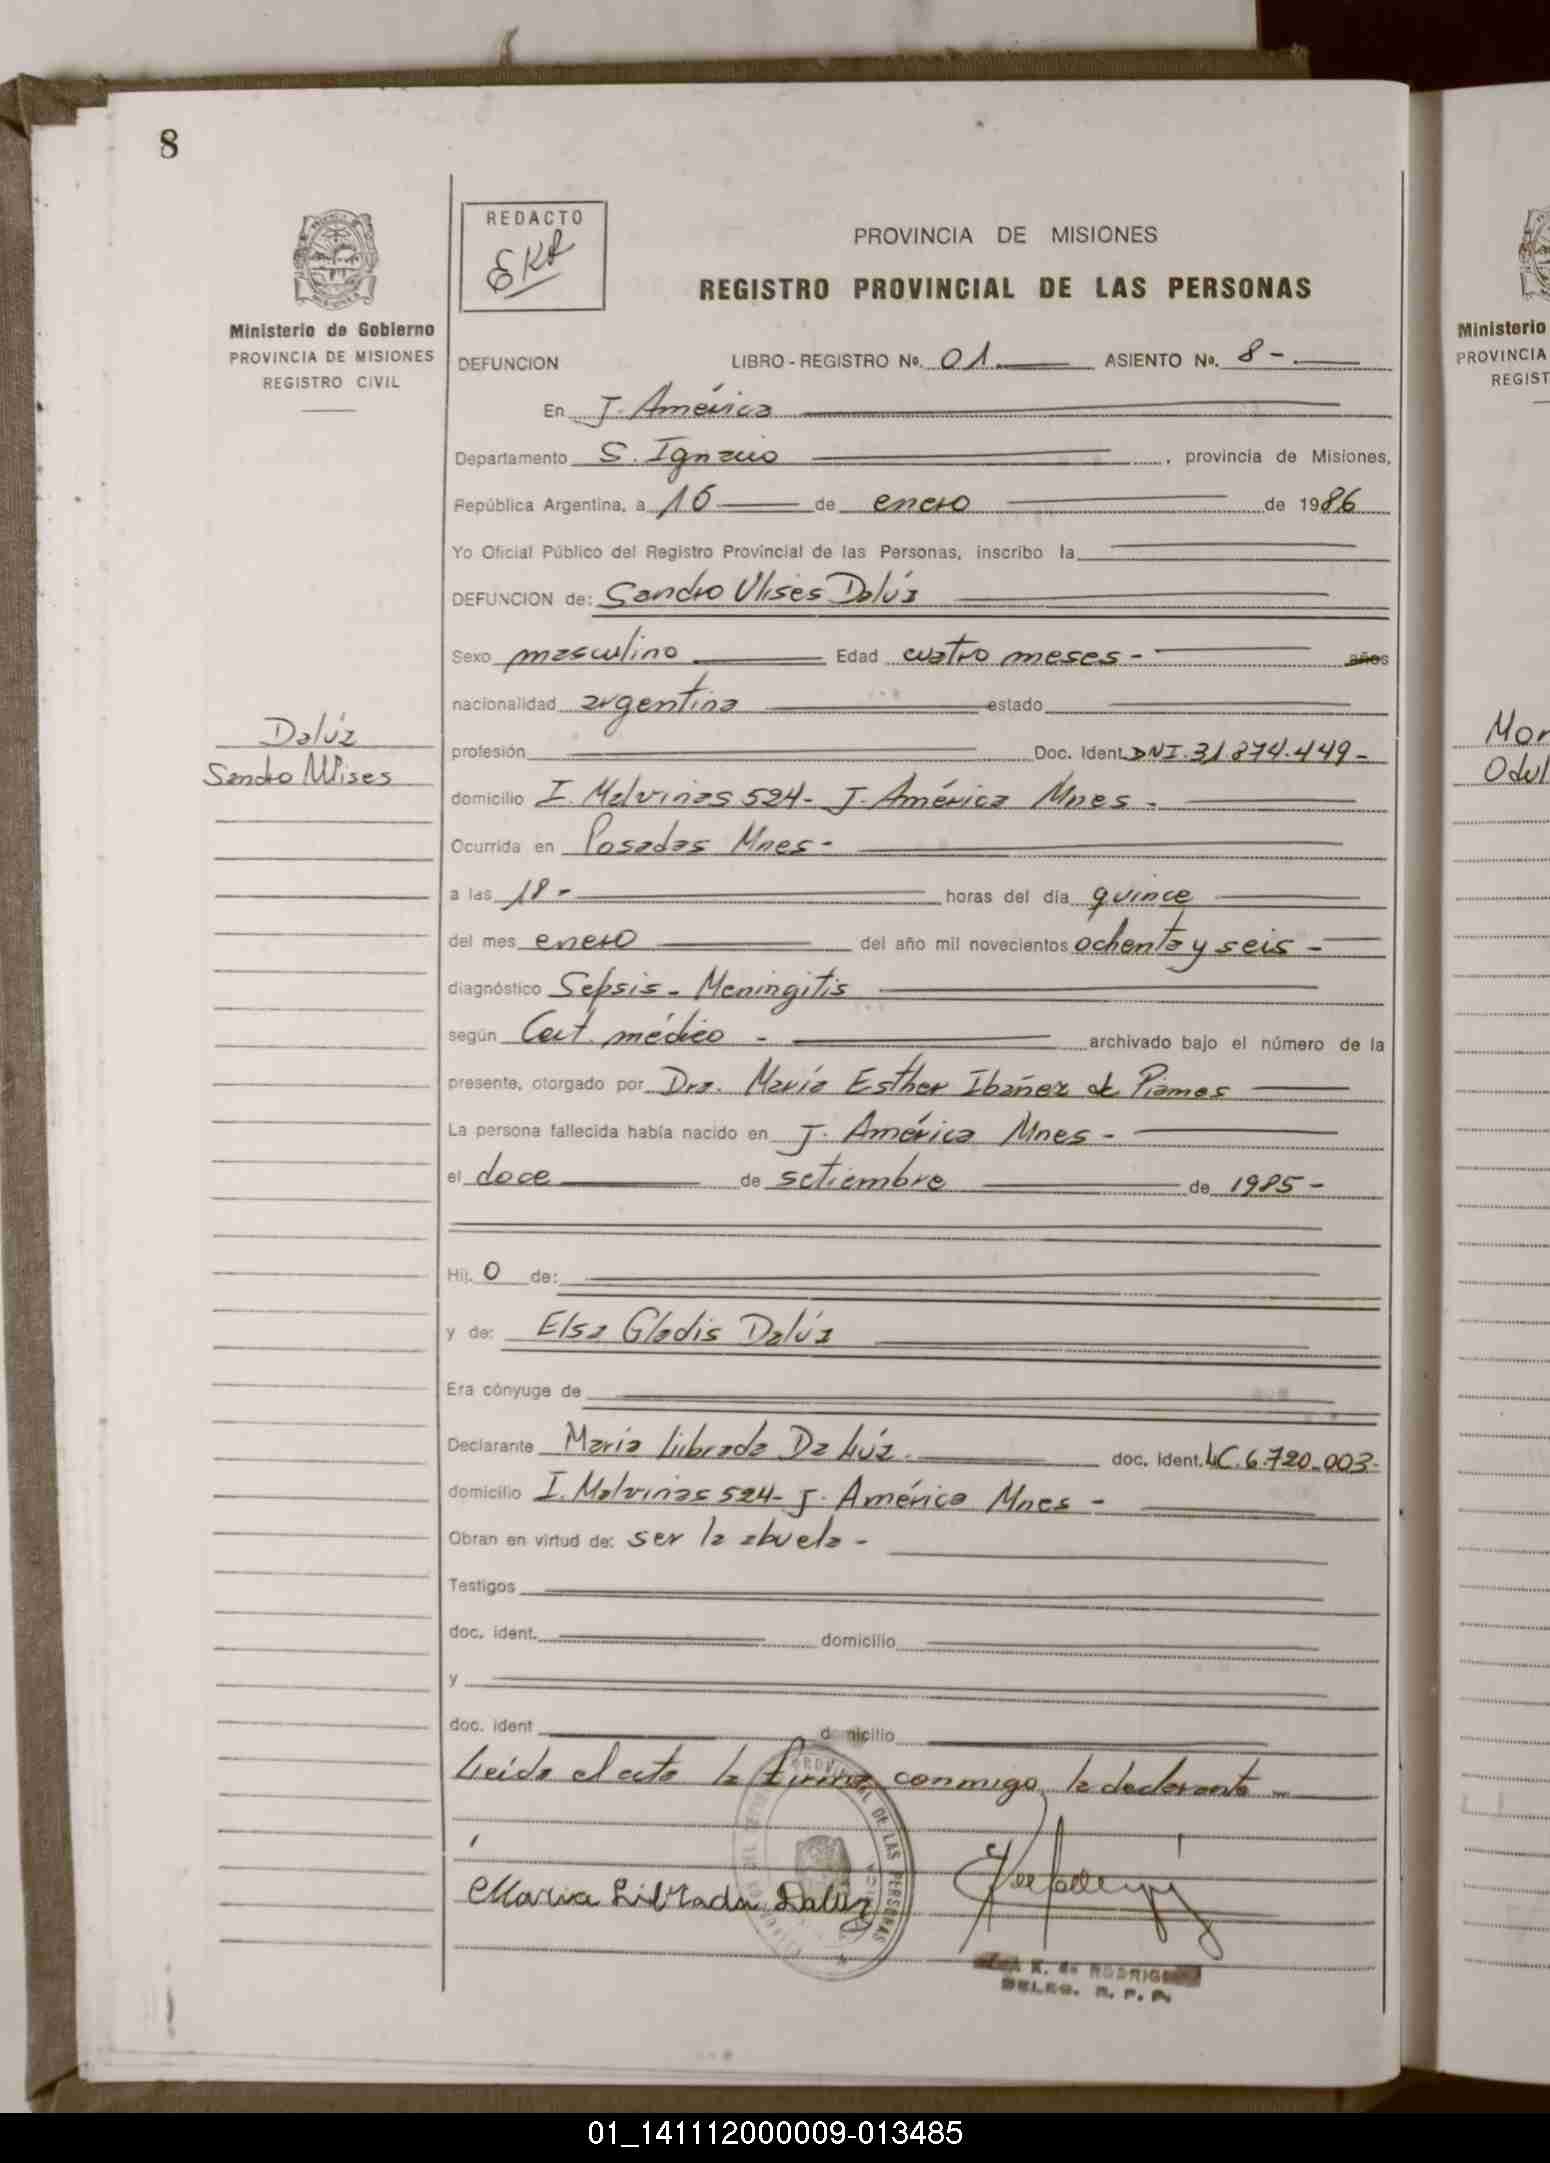 8
REDACTO
EKR
PROVINCIA DE MISIONES
REGISTRO PROVINCIAL DE LAS PERSONAS
Ministerio de Gobierno
PROVINCIA DE MISIONES
REGISTRO CIVIL
DEFUNCION LIBRO - REGISTRO No. 01 ASIENTO No. 8 -
En J. América
Departamento S. Ignacio , provincia de Misiones,
República Argentina, a 16 de enero de 1986
Yo Oficial Público del Registro Provincial de las Personas, inscribo la
DEFUNCION de: Sandro Ulises Dalúz
Sexo masculino Edad cuatro meses - años
nacionalidad argentina estado
Dalúz
Sandro Ulises
profesión Doc. Ident. DNI. 31.874.449 -
domicilio I. Malvinas 524 - J. América Mnes -
Ocurrida en Posadas Mnes -
a las 18 - horas del día quince
del mes enero del año mil novecientos ochenta y seis -
diagnóstico Sepsis - Meningitis
según Cert. médico - archivado bajo el número de la
presente, otorgado por Dra. María Esther Ibañez de Piames
La persona fallecida había nacido en J. América Mnes -
el doce de setiembre de 1985 -
Hij. o de:
y de: Elsa Gladis Dalúz
Era cónyuge de
Declarante María Librada Da Lúz doc. ident. LC. 6.720.003 -
domicilio I. Malvinas 524 - J. América Mnes -
Obran en virtud de: ser la abuela -
Testigos
doc. ident. domicilio
y
doc. ident domicilio
Leída el acta la firma conmigo, la declarante -
Maria Librada Daluz
PROVINCIAL DE LAS PERSONAS
K. de RODRIG
DELEG. R. P. P.
Ministerio
PROVINCIA
REGIST
Mor
Odul
01_141112000009-013485